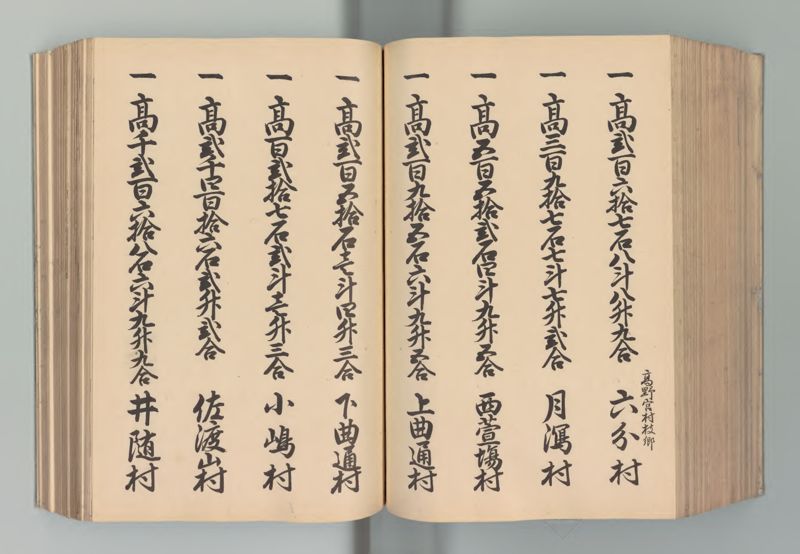 一 高弐百六拾七石八斗八升九合 高野宮村枝郷 六分村
一 高三百九拾七石七斗七升弐合 月潟村
一 高五百五拾弐石四斗九升五合 西萱場村
一 高弐百九拾五石六斗九升五合 上曲通村
一 高弐百五拾石壱斗四升三合 下曲通村
一 高百弐拾七石弐斗壱升三合 小嶋村
一 高弐千四百拾六石弐升弐合 佐渡山村
一 高千弐百六拾八石六斗九升九合 井随村